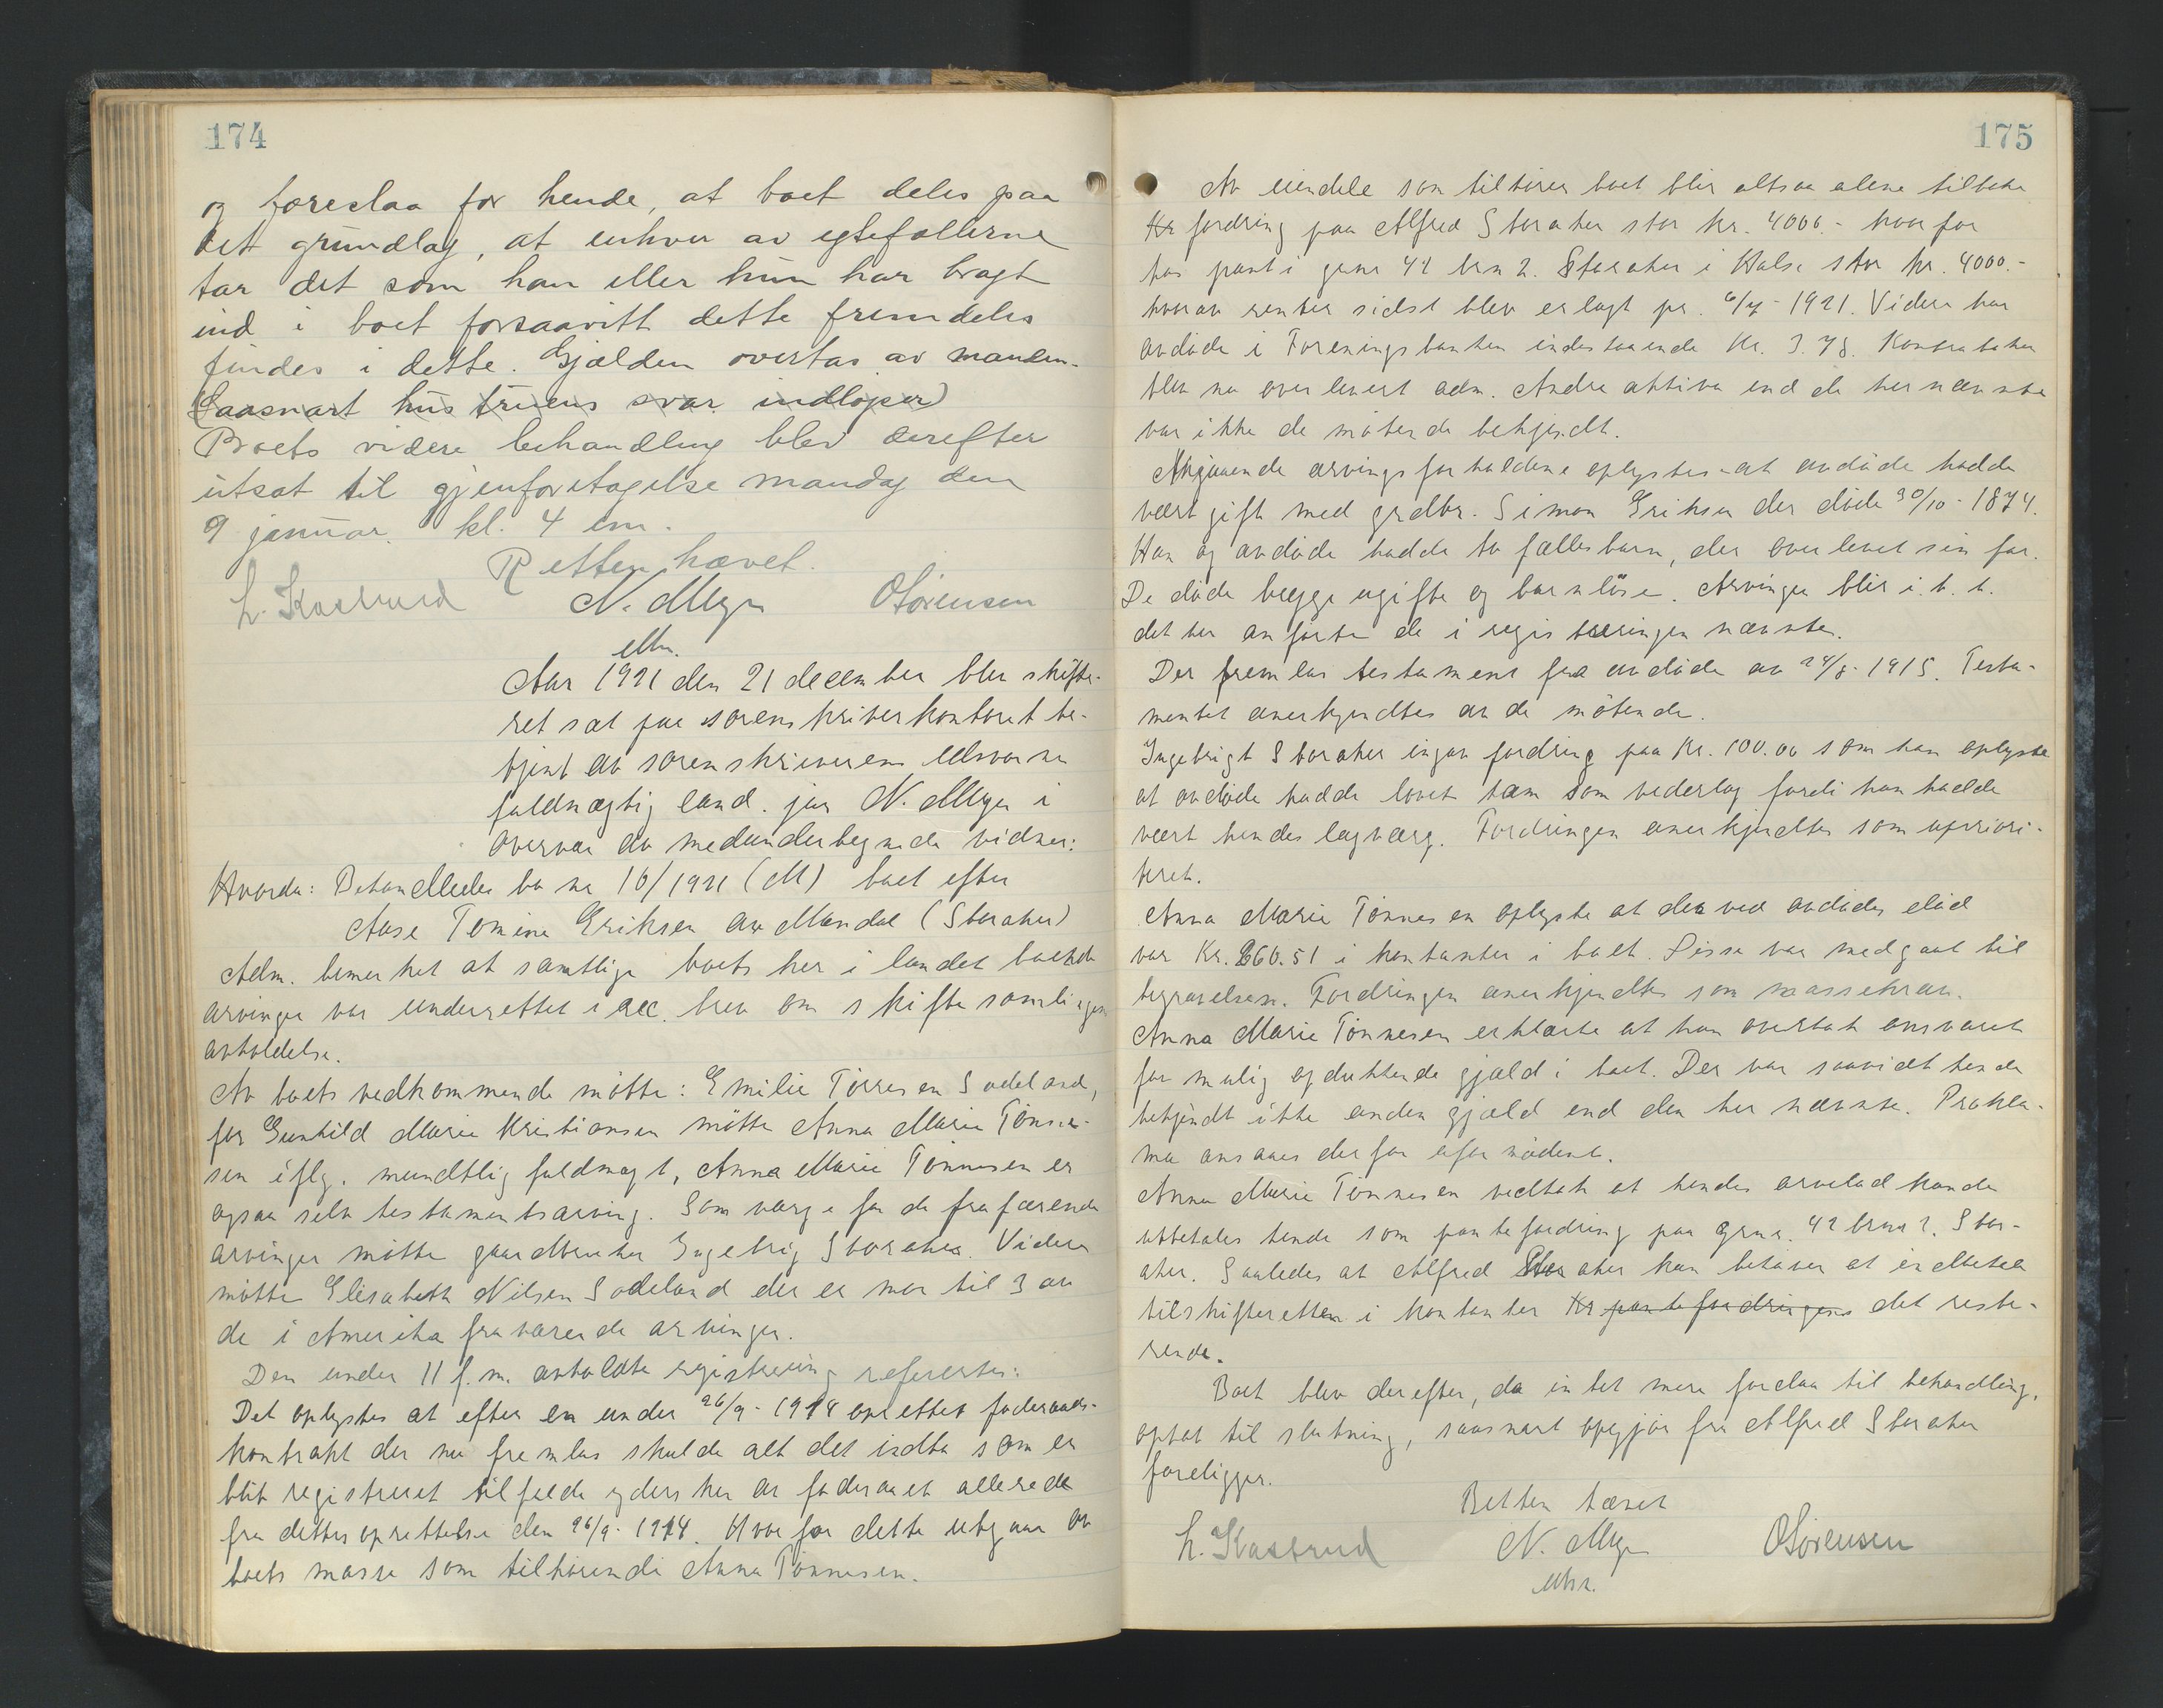 174
og foreslaa for hende, at boet deles paa
det grundlag, at enhver av egtefællerne
tar det som han eller hun har bragt
ind i boet forsaavitt dette fremdeles
findes i dette. Gjælden overtas av manden.
(Saasnart hustruens svar indløper)
Boets videre behandling blev derefter
utsat til gjenforetagelse mandag den
9 januar kl. 4 em.
Retten hævet.
L. Kastrud N. Meyer O Sørensen
Aar 1921 den 21 december blev skifte-
ret sat paa sorenskriverkontoret be-
tjent av sorenskriverens edsvorne
fuldmægtig cand. jur N. Meyer i
overvær av medundertegnede vidner:
Hvorda: Behandledes bo nr 16/1921 (M) boet efter
Aase Tomine Eriksen av Mandal (Storaker)
Adm. bemerket at samtlige boets her i landet boende
arvinger var underrettet i rec. brev om skiftesamlingens
avholdelse.
Av boets vedkommende møtte: Emilie Tørresen Sodeland,
for Gunhild Marie Kristiansen møtte Anna Marie Tønne-
sen iflg. mundtlig fuldmagt, Anna Marie Tønnesen er
ogsaa selv testamentsarving. Som værge for de fraværende
arvinger møtte gaardbruker Ingebrig Storaker. Videre
møtte Elisabeth Nilsen Sodeland der er mor til 3 av
de i Amerika fraværende arvinger.
Den under 11 f.m. avholdte registrering refertes:
Det oplystes at efter en under 26/9-1918 oprettet føderaads-
kontrakt der nu fremlas skulde alt det indbo som er
blit registreret tilfalde ydersker av føderaadet allerede
fra dettes oprettelse den 26/9-1914. Hvorfor dette utgaar av
boets masse som tilhørende Anna Tønnesen.
175
Av eiendele som tilhører boet blir altsaa alene tilbake
Kr fordring paa Alfred Storaker stor kr. 4000.- hvorfor
has pant i gnr 42 brn 2. Storaker i Halse stor kr. 4000.-
hvorav renter sidst blev erlagt pr. 6/7-1921. Videre har
avdøde i Foreningsbanken indestaaende kr. 3.78. Kontraboken
blev nu overlevert adm. Andre aktiva end de her nævnte
var ikke de møtende bekjendt.
Angaaende arvingsforholdene oplystes at avdøde hadde
vært gift med grdbr. Simon Eriksen der døde 30/10-1874.
Han og avdøde hadde to fællesbarn, der overlevet sin far.
De døde begge ugifte og barnløse. Arvinger blir i. h. t.
det her anførte de i registreringen nævnte.
Der fremlas testament fra avdøde av 24/8-1915. Testa-
mentet anerkjendtes av de møtende.
Ingebrigt Storaker ingav fordring paa kr. 100.00 som han oplyste
at avdøde hadde lovet ham som vederlag fordi han hadde
vært hendes lagværge. Fordringen anerkjendtes som upriori-
teret.
Anna Marie Tønnesen oplyste at der ved avdødes død
var kr. 260.51 i kontanter i boet. Disse var medgaat til
begravelsen. Fordringen anerkjendtes som massekrav.
Anna Marie Tønnesen erklærte at hun overtok ansvaret
for mulig opdukkende gjæld i boet. Der var saavidt hende
bekjendt ikke anden gjæld end den her nævnte. Prokla-
ma ansaaes derfor ufornødent.
Anna Marie Tønnesen vedtok at hendes arvelod kunde
utbetales hende som pantefordring paa grnr. 42 brnr 2. Stor-
aker. Saaledes at Alfred Storaker kun behøver at indbetale
til skifteretten i kontanter Kr pantefordringens det reste-
rende.
Boet blev derefter, da intet mere forelaa til behandling,
optat til slutning, saasnart opgjør fra Alfred Storaker
foreligger.
Retten hævet
L. Kastrud N. Meyer O Sørensen